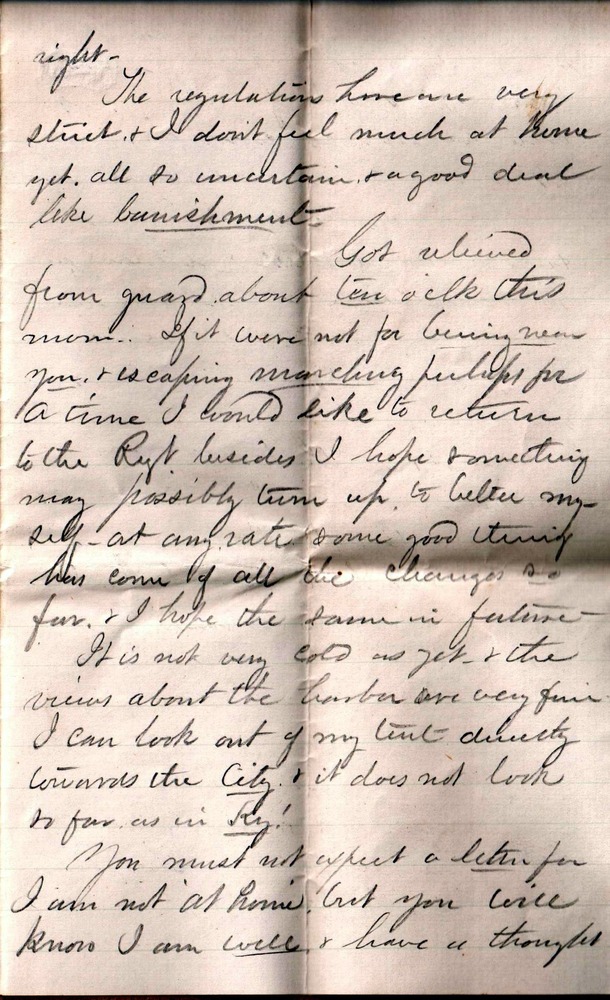 right -
The regulations here are very
strict. & I don't feel much at home
yet. all so uncertain. & a good deal
like banishment -
Got relieved
from guard about ten oclk this
morn.. If it were not for being near
you. & escaping marching perhaps for
a time I would like to return
to the Regt besides I hope something
may possibly turn up. to better my-
self - at any rate some good thing
has come of all the changes so
far. & I hope the same in future -
It is not very cold as yet - & the
views about the harbor are very fine
I can look out of my tent directly
towards the City. & it does not look
so far. as in Ky!
You must not expect a letter for
I am not at home. but you will
know I am well. & have a thought